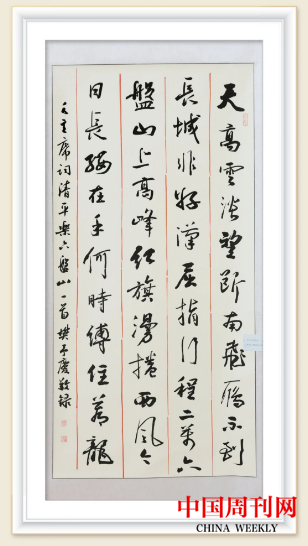 天高雲淡望断南飛雁不到
長城非好漢屈指行程二萬六
盤山上高峰紅旗漫捲西風今
日長纓在手何時縛住蒼龍
毛主席詞清平樂六盤山一首
中国周刊网
CHINA WEEKLY